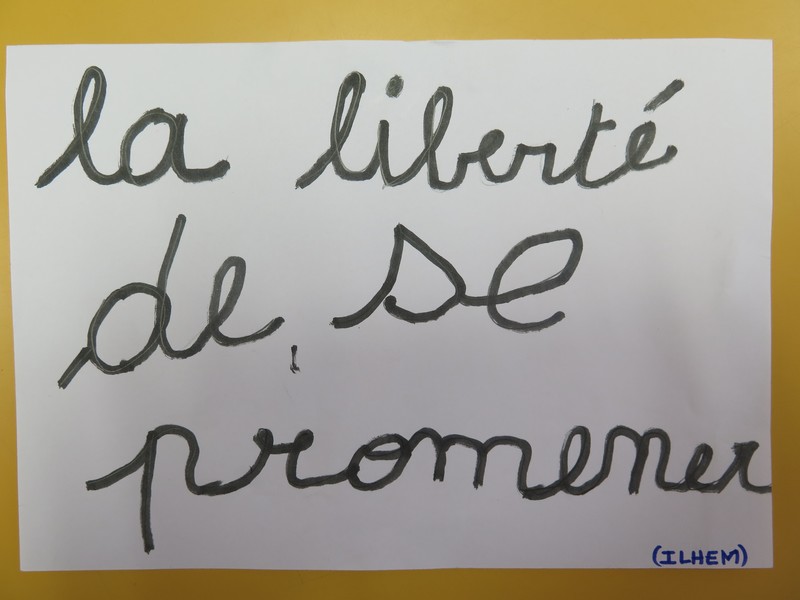 la liberté
de se
promener
(ILHEM)